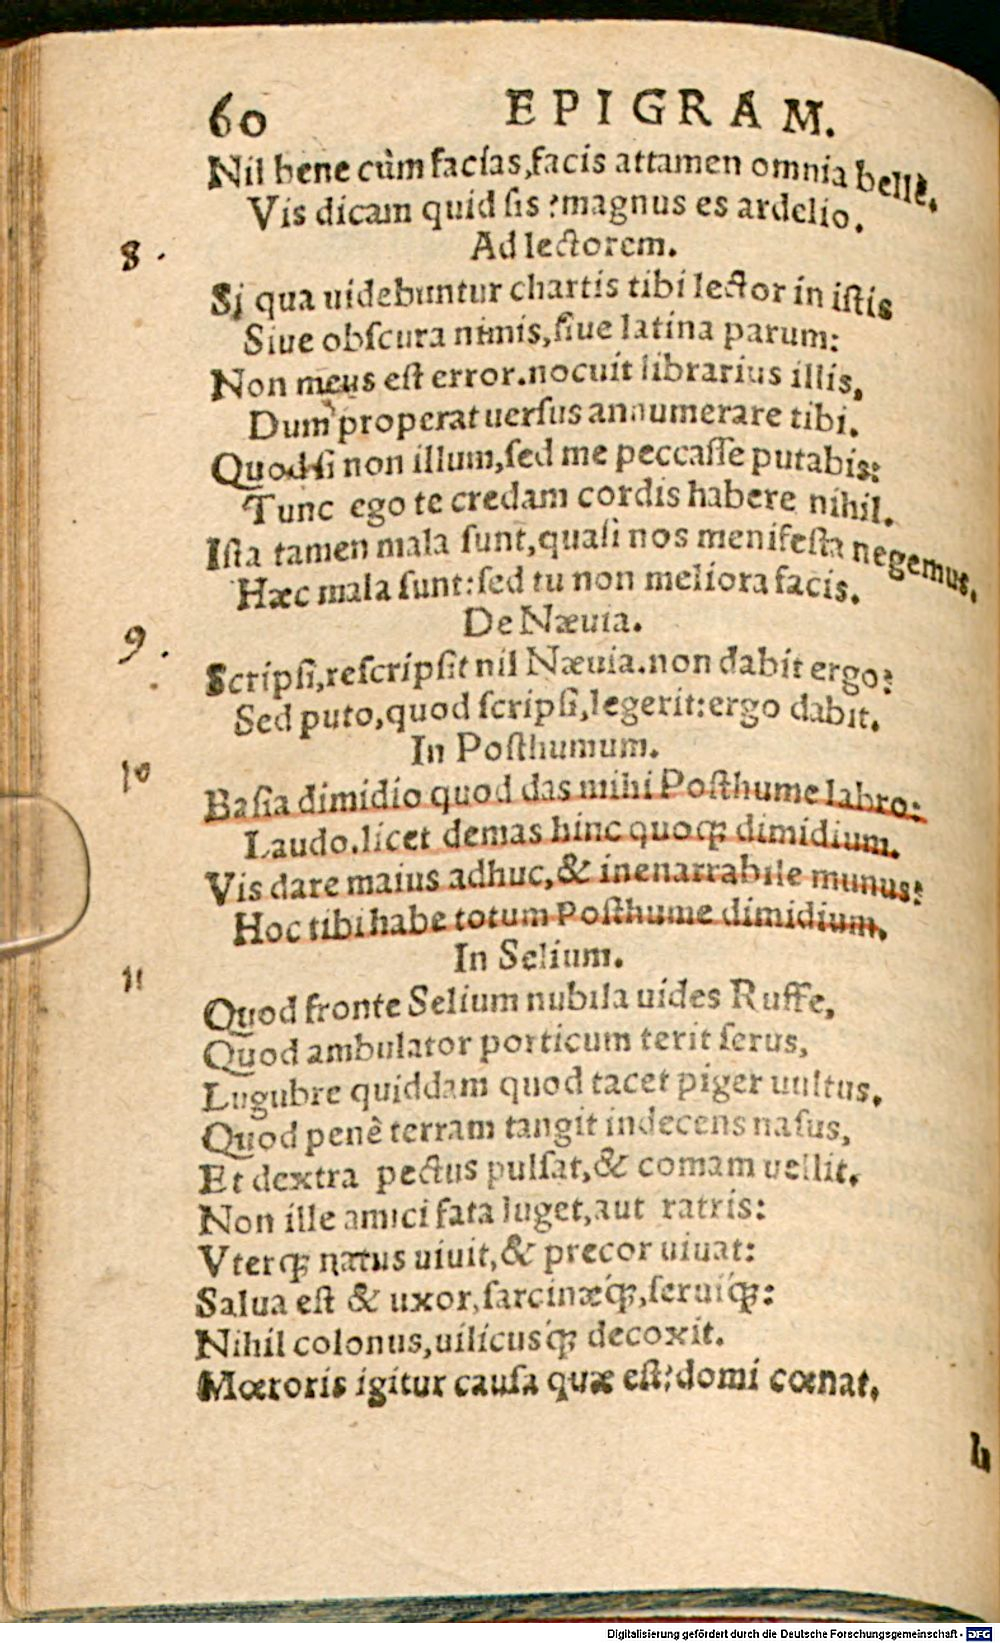 60 EPIGRAM.
Nil bene cùm facias, facis attamen omnia bellè.
Vis dicam quid sis? magnus es ardelio.
8. Ad lectorem.
Si qua uidebuntur chartis tibi lector in istis
Siue obscura nimis, siue latina parum:
Non meus est error. nocuit librarius illis,
Dum properat uersus annumerare tibi.
Quod si non illum, sed me peccasse putabis:
Tunc ego te credam cordis habere nihil.
Ista tamen mala sunt, quasi nos menifesta negemus.
Hæc mala sunt: sed tu non meliora facis.
9. De Næuia.
Scripsi, rescripsit nil Næuia. non dabit ergo?
Sed puto, quod scripsi, legerit: ergo dabit.
In Posthumum.
10 Basia dimidio quod das mihi Posthume labro:
Laudo. licet demas hinc quoqꝫ dimidium.
Vis dare maius adhuc, & inenarrabile munus?
Hoc tibi habe totum Posthume dimidium.
In Selium.
11
Quod fronte Selium nubila uides Ruffe,
Quod ambulator porticum terit serus,
Lugubre quiddam quod tacet piger uultus.
Quod penê terram tangit indecens nasus,
Et dextra pectus pulsat, & comam uellit.
Non ille amici fata luget, aut ratris:
Vterqꝫ natus uiuit, & precor uiuat:
Salua est & uxor, sarcinæq́ꝫ, seruiq́ꝫ:
Nihil colonus, uilicusq́ꝫ decoxit.
Mœroris igitur causa quæ est? domi cœnat.
Digitalisierung gefördert durch die Deutsche Forschungsgemeinschaft - DFG